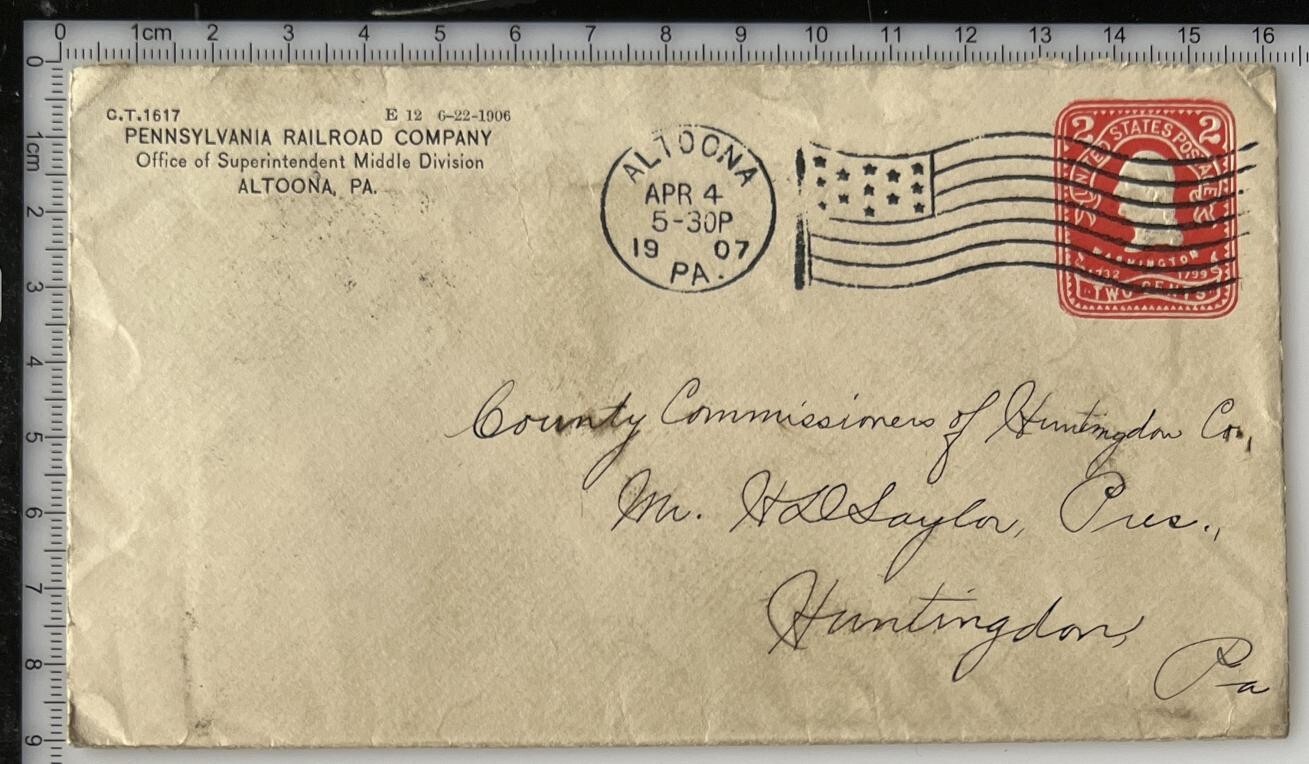 0 1cm 2 3 4 5 6 7 8 9 10 11 12 13 14 15 16
0 1cm 2 3 4 5 6 7 8 9
C.T.1617 E 12 6-22-1906
PENNSYLVANIA RAILROAD COMPANY
Office of Superintendent Middle Division
ALTOONA, PA.
ALTOONA
APR 4
5-30P
19 07
PA.
2 2
UNITED STATES POSTAGE
WASHINGTON
1732 1799
TWO CENTS
County Commissioners of Huntingdon Co.,
Mr. H D Saylor, Pres.,
Huntingdon,
Pa